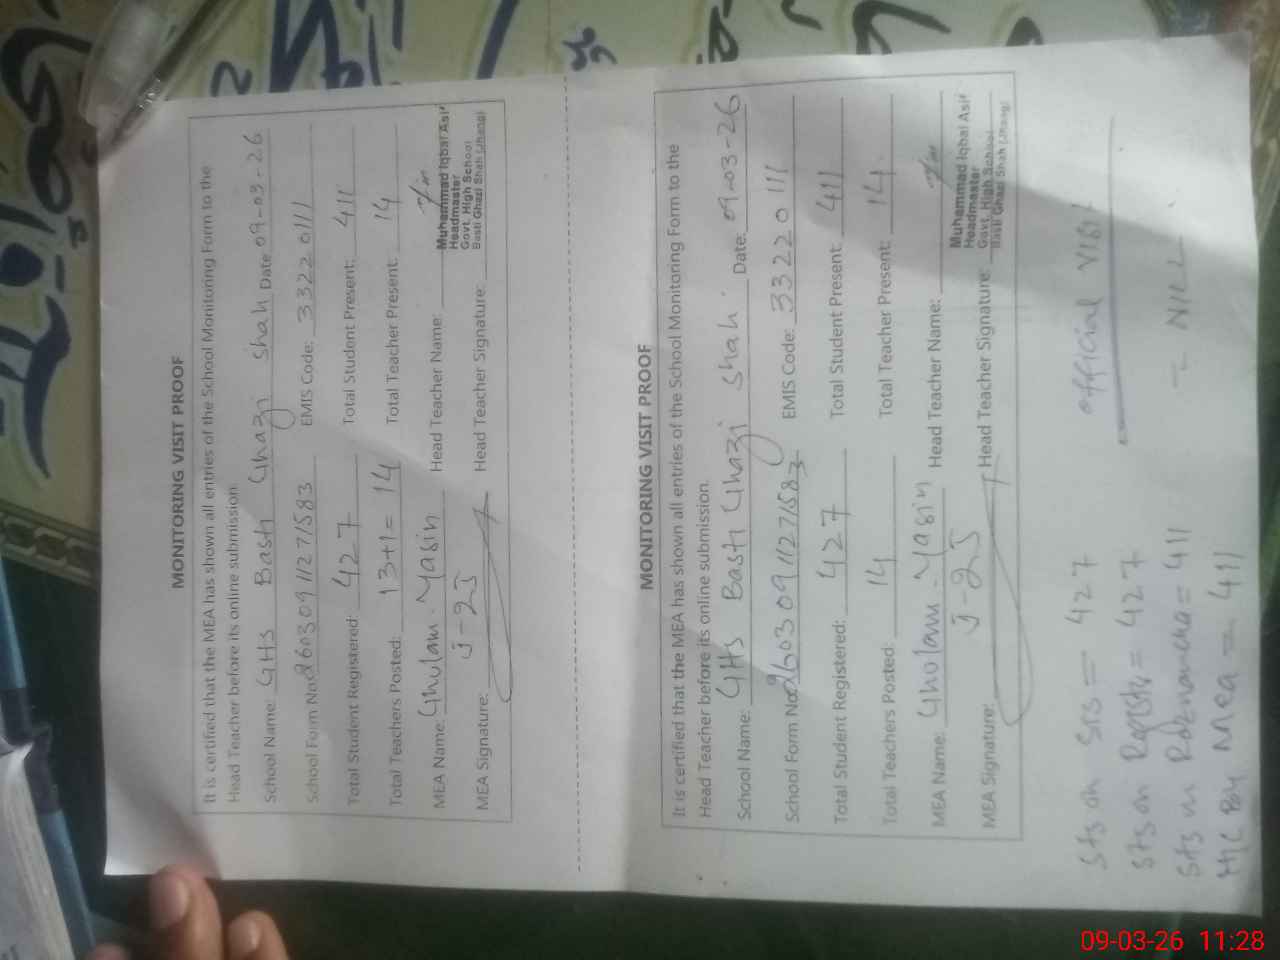 MONITORING VISIT PROOF
It is certified that the MEA has shown all entries of the School Monitoring Form to the
Head Teacher before its online submission.
School Name: GHS Basti Ghazi Shah Date 09-03-26
School Form No: 26030911271583 EMIS Code: 33220111
Total Student Registered: 427 Total Student Present: 411
Total Teachers Posted: 13+1=14 Total Teacher Present: 14
MEA Name: Ghulam Yasin Head Teacher Name:
J-25
MEA Signature: Head Teacher Signature:
Muhammad Iqbal Asif
Headmaster
Govt. High School
Basti Ghazi Shah (Jhang)
MONITORING VISIT PROOF
It is certified that the MEA has shown all entries of the School Monitoring Form to the
Head Teacher before its online submission.
School Name: GHS Basti Ghazi Shah. Date: 09-03-26
School Form No: 26030911271583 EMIS Code: 33220111
Total Student Registered: 427 Total Student Present: 411
Total Teachers Posted: 14 Total Teacher Present: 14
MEA Name: Ghulam Yasin Head Teacher Name:
J-25
MEA Signature: Head Teacher Signature:
Muhammad Iqbal Asif
Headmaster
Govt. High School
Basti Ghazi Shah (Jhang)
Sts on SIS = 427
Sts on Register = 427
Sts in Roznamcha = 411
H/C By Mea = 411
official visit
- NILL -
09-03-26 11:28